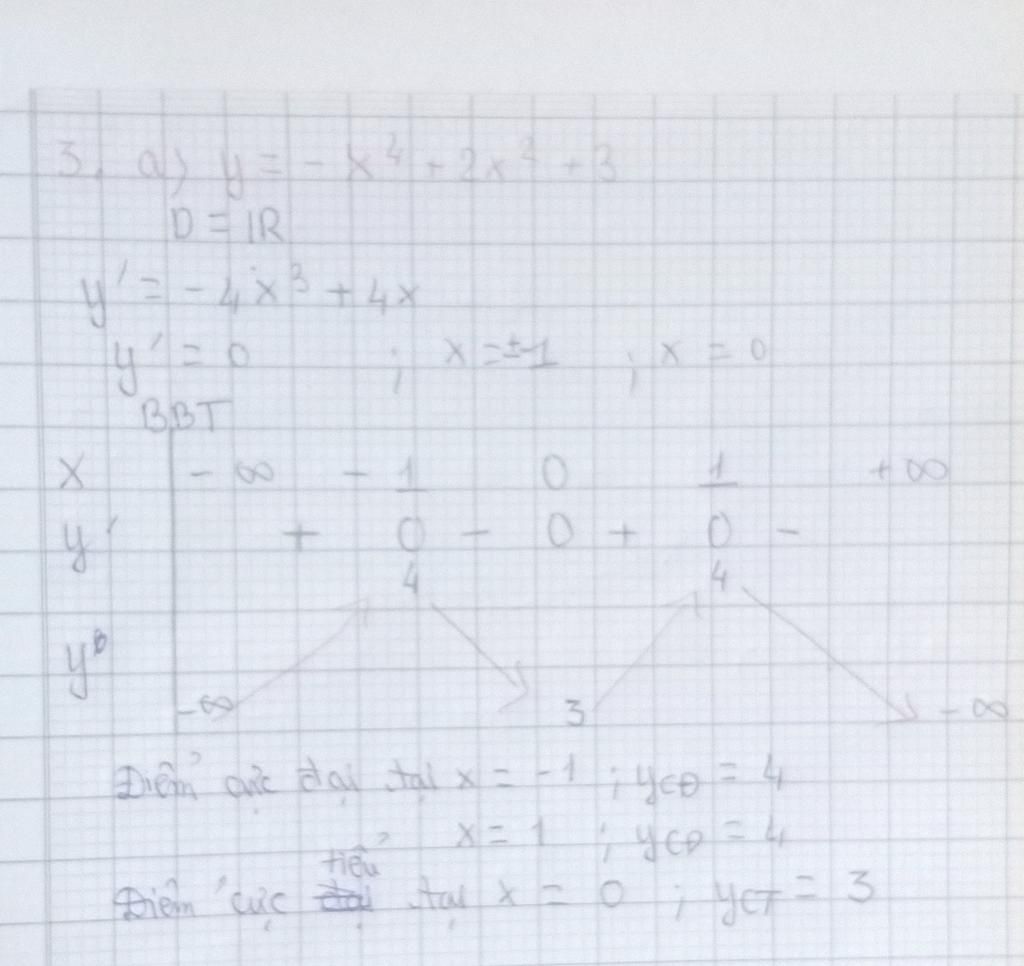 3. a) y = - x⁴ + 2x² + 3
D = IR
y' = - 4x³ + 4x
y' = 0 ; x = ±1 ; x = 0
BBT
x - ∞ - 1 0 1 + ∞
y' + 0 - 0 + 0 -
4 4
y
-∞ 3 - ∞
Điểm cực đại tại x = -1 ; yCĐ = 4
x = 1 ; yCĐ = 4
Điểm cực tiểu tại x = 0 ; yCT = 3